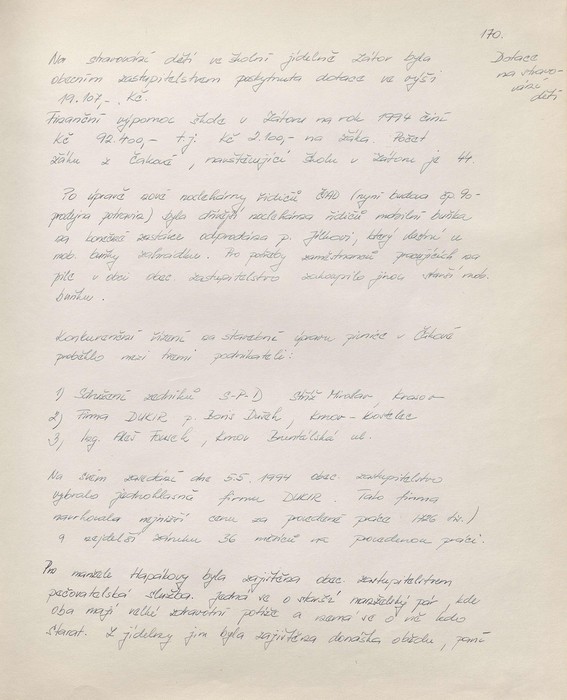 170.
Dotace
na stravo-
vání
dětí
Na stravování dětí ve školní jídelně Zátor byla
obecním zastupitelstvem poskytnuta dotace ve výši
19.107,- Kč.
Finanční výpomoc škole v Zátoru na rok 1994 činí
Kč 92.400,- t.j. Kč 2.100,- na žáka. Počet
žáků z Čakové, navštěvující školu v Zátoru je 44
Po úpravě nové noclehárny řidičů ČSAD (nyní budova čp. 90-
prodejna potravin) byla dřívější noclehárna řidičů mobilní buňka
na konečné zastávce odprodána p. Jílkovi, který vlastní u
mob. buňky zahrádku. Pro potřeby zaměstnanců pracujících na
pile v obci obec. zastupitelstvo zakoupilo jinou starší mob.
buňku.
Konkurenční řízení na stavební úpravu pivnice v Čakové
proběhlo mezi třemi podnikateli:
1) Sdružení zedníků S-P-D Stříž Miroslav, Krasov
2) Firma DUKIR p. Boris Dušek, Krnov - Kostelec
3, Ing. Aleš Fousek, Krnov Bruntálská ul.
Na svém zasedání dne 5.5. 1994 obec. zastupitelstvo
vybralo jednohlasně firmu DUKIR. Tato firma
navrhovala nejnižší cenu za provedené práce (426 tis.)
a nejdelší záruku 36 měsíců na provedenou práci.
Pro manžele Hapákovy byla zajištěna obec. zastupitelstvem
pečovatelská služba. Jedná se o starší manželský pár, kde
oba mají velké zdravotní potíže a nemá se o ně kdo
starat. Z jídelny jim byla zajištěna donáška obědů, paní